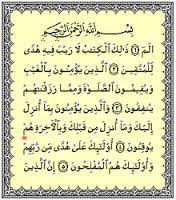 بِسْمِ ٱللَّهِ ٱلرَّحْمَٰنِ ٱلرَّحِيمِ
الٓمٓ ١ ذَٰلِكَ ٱلْكِتَٰبُ لَا رَيْبَ فِيهِ هُدًى
لِّلْمُتَّقِينَ ٢ ٱلَّذِينَ يُؤْمِنُونَ بِٱلْغَيْبِ
وَيُقِيمُونَ ٱلصَّلَوٰةَ وَمِمَّا رَزَقْنَٰهُمْ
يُنفِقُونَ ٣ وَٱلَّذِينَ يُؤْمِنُونَ بِمَآ أُنزِلَ
إِلَيْكَ وَمَآ أُنزِلَ مِن قَبْلِكَ وَبِٱلْءَاخِرَةِ هُمْ
يُوقِنُونَ ٤ أُو۟لَٰٓئِكَ عَلَىٰ هُدًى مِّن رَّبِّهِمْ
وَأُو۟لَٰٓئِكَ هُمُ ٱلْمُفْلِحُونَ ٥ إِنَّ ٱلَّذِينَ